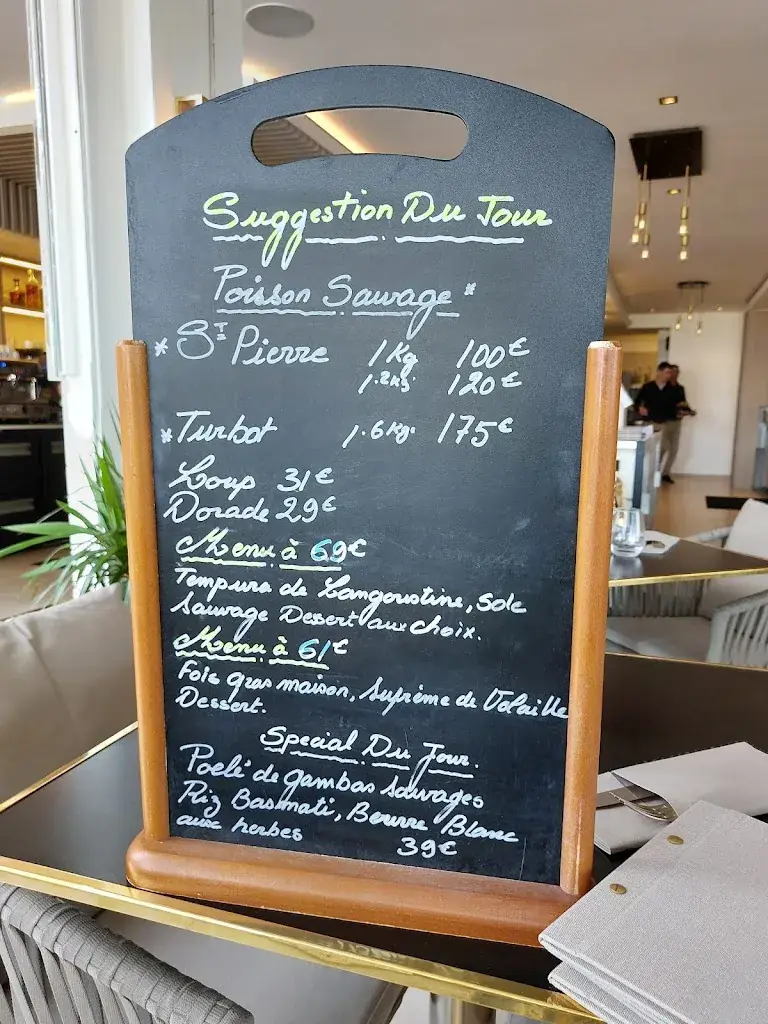 Suggestion Du Jour
Poisson Sauvage *
* ST Pierre 1Kg 100€
1.2Kg. 120€
* Turbot 1.6Kg. 175€
Loup 31€
Dorade 29€
Menu à 69€
Tempura de Langoustine, Sole
Sauvage Dessert aux choix.
Menu à 61€
Foie gras maison, Suprême de Volaille
Dessert.
Special Du Jour.
Poelé de gambas Sauvages
Riz Basmati, Beurre Blanc
aux herbes 39€